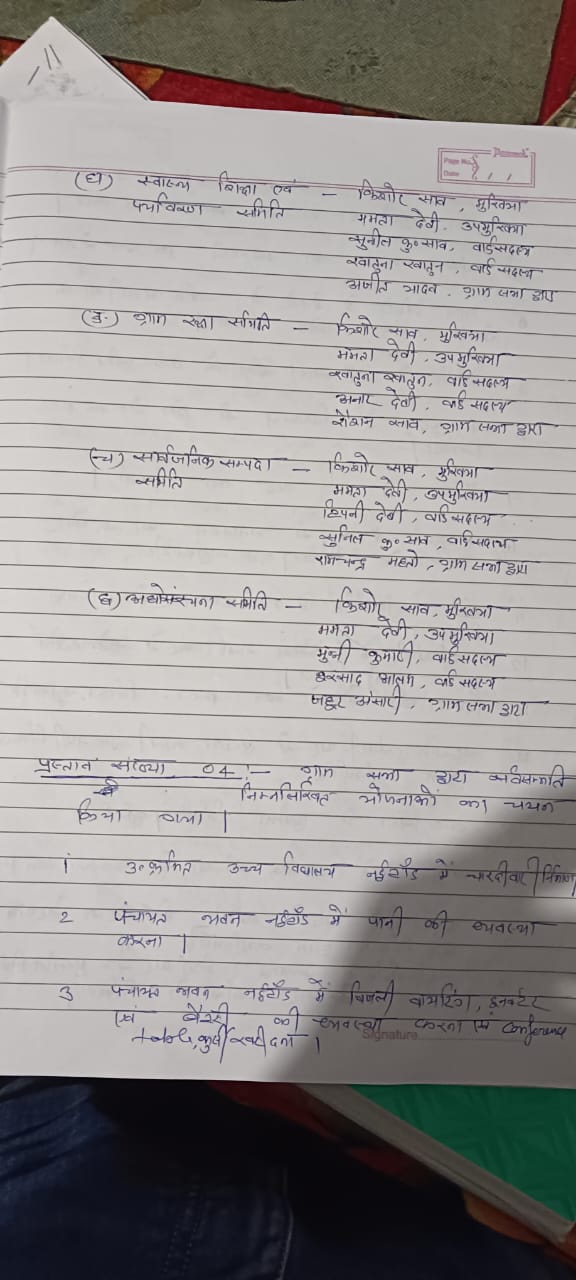 Page No.
Date
(घ) स्वास्थ्य शिक्षा एवं – किशोर साव, मुखिया
पर्यावरण समिति ममता देवी, उपमुखिया
सुनील कु० साव, वार्ड सदस्य
खातुना खातुन, वार्ड सदस्य
अजीत यादव, ग्राम सभा द्वारा
(ङ) ग्राम रक्षा समिति – किशोर साव, मुखिया
ममता देवी, उपमुखिया
खातुना खातुन, वार्ड सदस्य
अनार देवी, वार्ड सदस्य
रौशन साव, ग्राम सभा द्वारा
(च) सार्वजनिक सम्पदा – किशोर साव, मुखिया
समिति ममता देवी, उपमुखिया
देवी, वार्ड सदस्य
सुनिल कु० साव, वार्ड सदस्य
रामचन्द्र महतो, ग्राम सभा द्वारा
(छ) अधोसंरचना समिति – किशोर साव, मुखिया
ममता देवी, उपमुखिया
मुन्नी कुमारी, वार्ड सदस्य
आलम, वार्ड सदस्य
जहूर अंसारी, ग्राम सभा द्वारा
प्रस्ताव संख्या 04 :– ग्राम सभा द्वारा सर्वसम्मति
से निम्नलिखित योजनाओं का चयन
किया गया |
1 उत्क्रमित उच्च विद्यालय नईटाँड में चारदीवारी निर्माण
2 पंचायत भवन नईटाँड में पानी की व्यवस्था
करना |
3 पंचायत भवन नईटाँड में बिजली वायरिंग, इनवर्टर
एवं बैटरी की व्यवस्था करना एवं Conference
table, कुर्सी खरीदना |
Signature